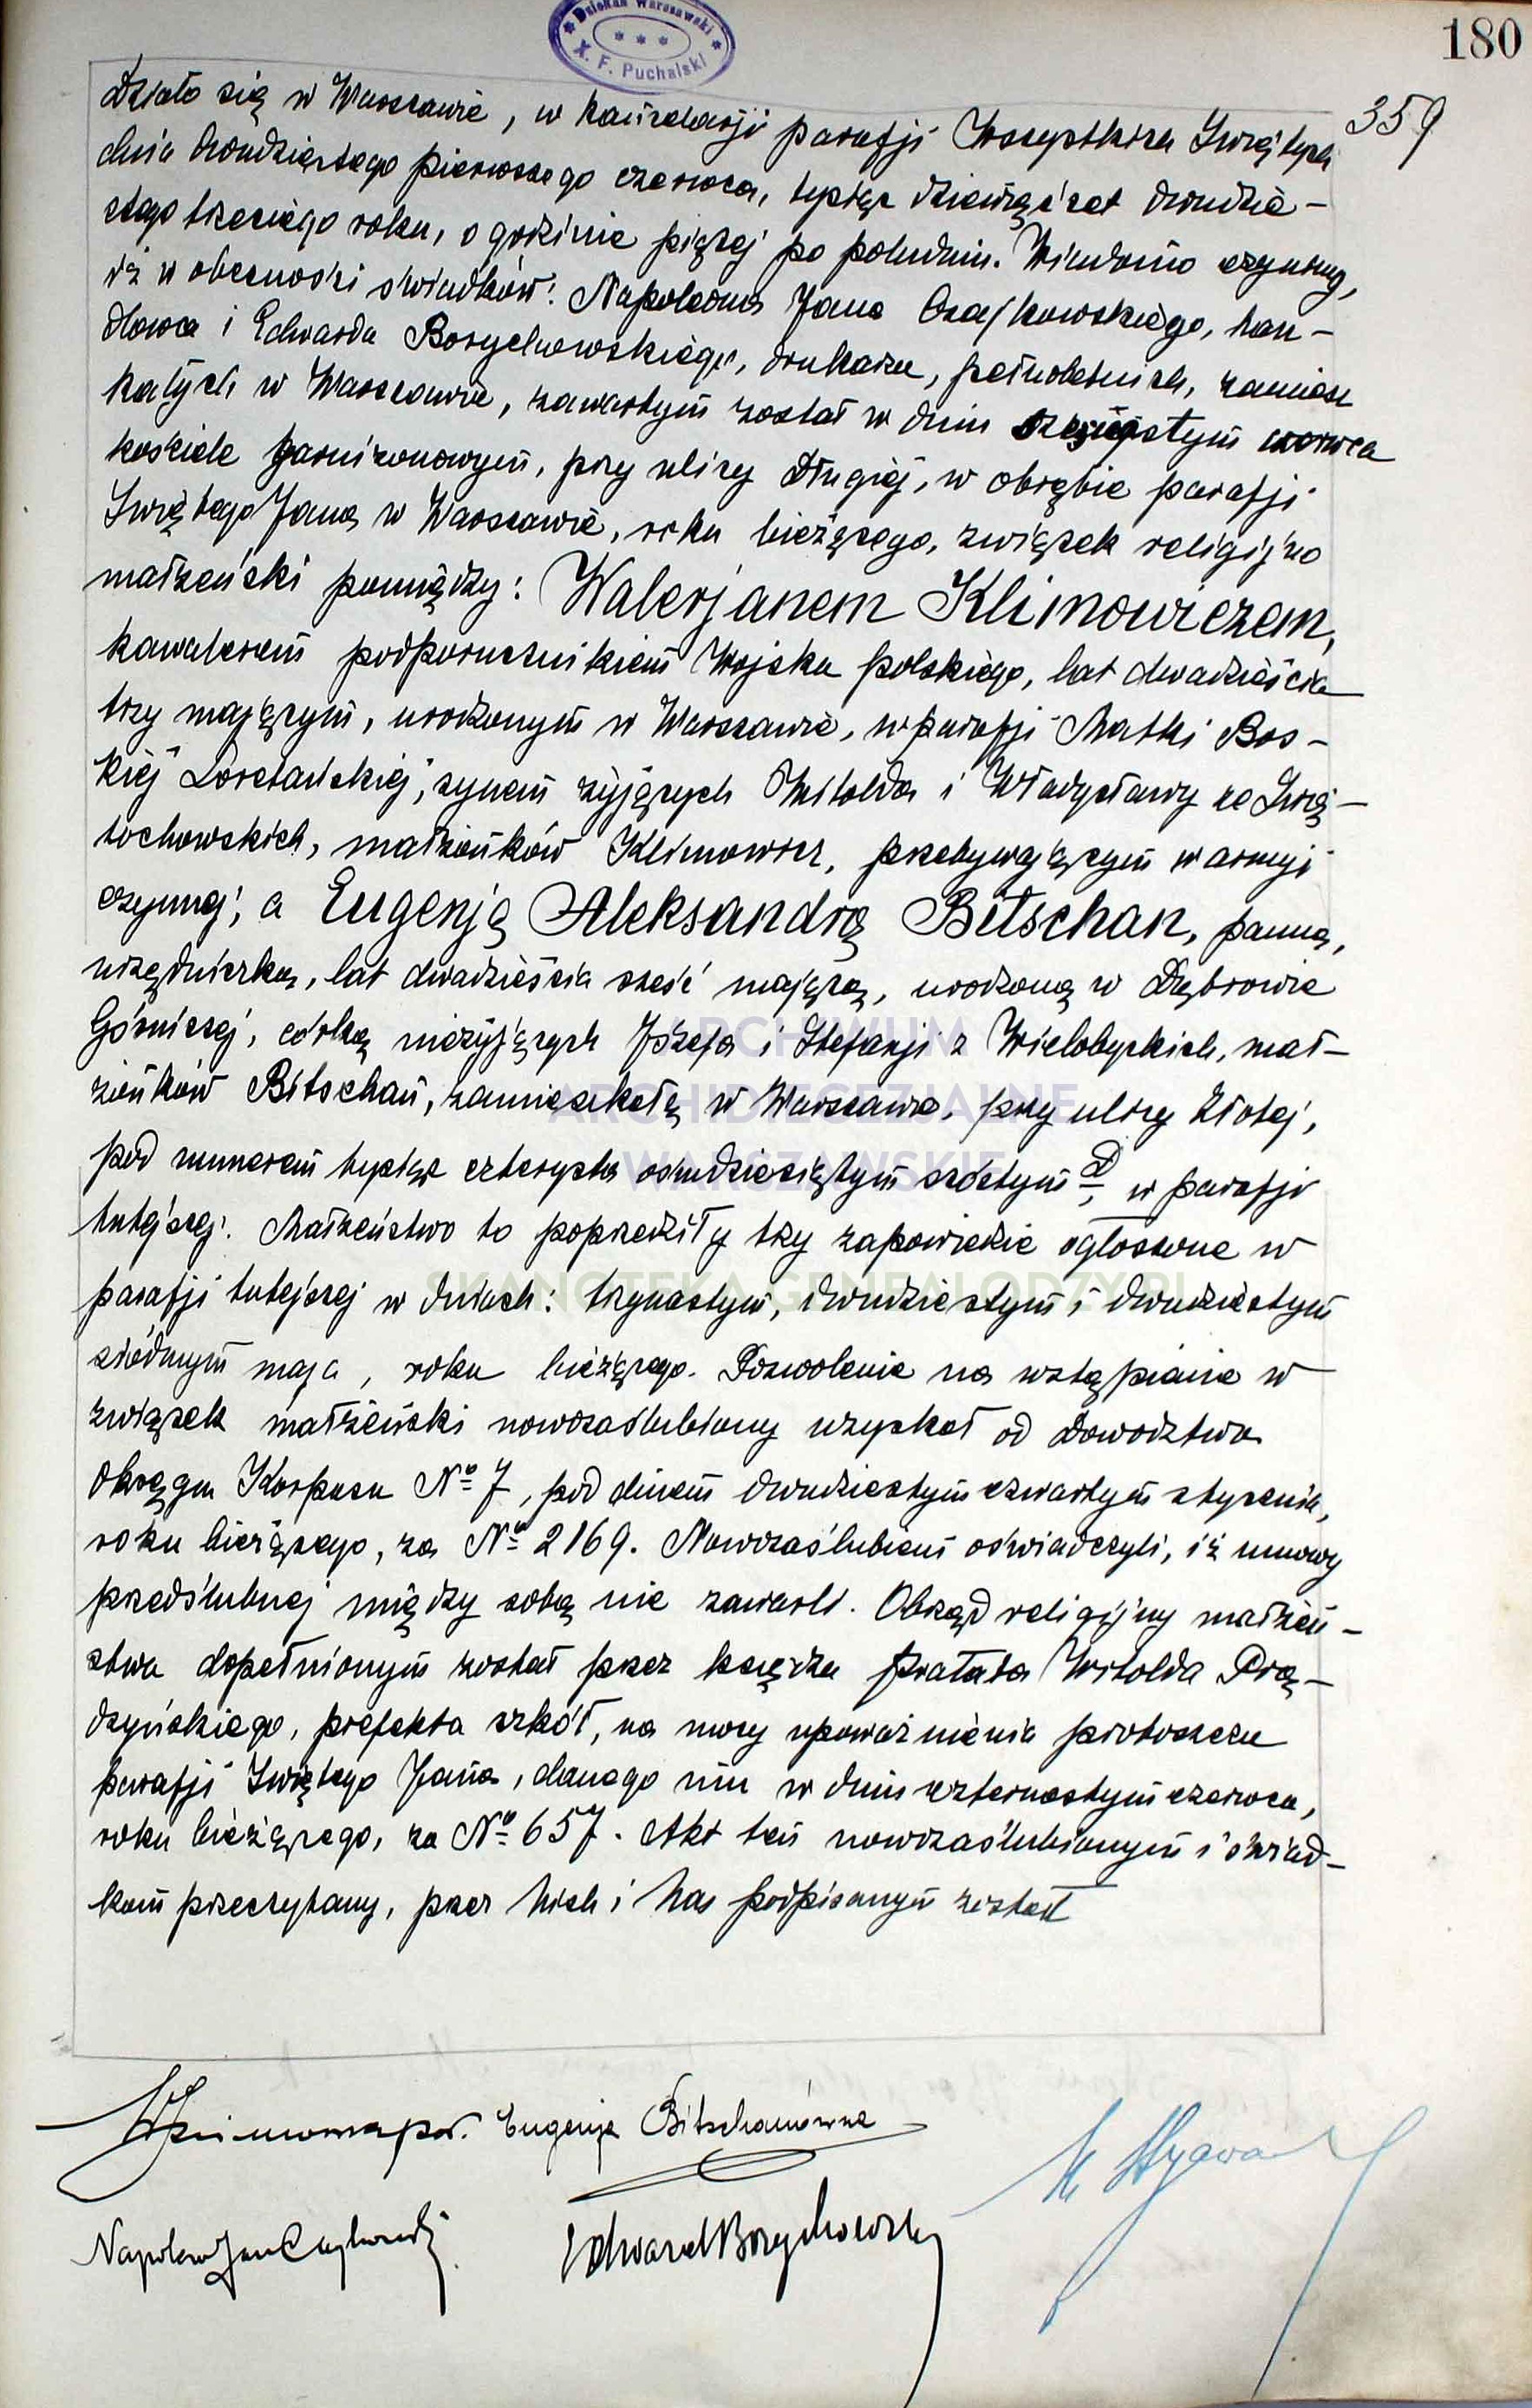 Dziekan Warszawski
X. F. Puchalski
180
359
Działo się w Warszawie, w kancelarji parafji Wszystkich Świętych
dnia dwudziestego pierwszego czerwca, tysiąc dziewięćset dwudzie-
stego trzeciego roku, o godzinie piątej po południu. Wiadomo czynimy,
iż w obecności świadków: Napoleona Jana Czajkowskiego, han-
dlowca i Edwarda Borychowskiego, drukarza, pełnoletnich, zamiesz
kałych w Warszawie, zawartym został w dniu czerwca
kościele garnizonowym, przy ulicy Długiej, w obrębie parafji
Świętego Jana w Warszawie, roku bieżącego, związek religijno
małżeński pomiędzy: Walerjanem Klimowiczem,
kawalerem podporucznikiem Wojska polskiego, lat dwadzieścia
trzy mającym, urodzonym w Warszawie, w parafji Matki Bos-
kiej Loretańskiej, synem żyjących Witolda i Władysławy ze Świę-
tochowskich, małżonków Klimowicz, przebywającym w armji
czynnej, a Eugenją Aleksandrą Bitschan, panną,
urzędniczką, lat dwadzieścia sześć mającą, urodzoną w Dąbrowie
Górniczej, córką nieżyjących Józefa i Stefanji z Wielobyckich, mał-
żonków Bitschan, zamieszkałą w Warszawie, przy ulicy Złotej,
pod numerem tysiąc czterysta osiemdziesiątym szóstym D, w parafji
tutejszej. Małżeństwo to poprzedziły trzy zapowiedzie ogłoszone w
parafji tutejszej w dniach: trzynastym, dwudziestym i dwudziestym
siódmym maja, roku bieżącego. Pozwolenie na wstąpienie w
związek małżeński nowozaślubiony uzyskał od Dowództwa
Okręgu Korpusu № 7, pod dniem dwudziestym czwartym stycznia,
roku bieżącego, za № 2169. Nowozaślubieni oświadczyli, iż umowy
przedślubnej między sobą nie zawarli. Obrząd religijny małżeń-
stwa dopełnionym został przez księdza prałata Witolda Prą-
dzyńskiego, prefekta szkół, na mocy upoważnienia proboszcza
parafji Świętego Jana, danego mu w dniu czternastym czerwca,
roku bieżącego, za № 657. Akt ten nowozaślubionym i świad-
kom przeczytany, przez Nich i Nas podpisanym został
Eugenja Bitschanówna
Napoleon Jan Czajkowski
Edward Borychowski
ARCHIWUM
ARCHIDIECEZJALNE
WARSZAWSKIE
SKANOTEKA.GENEALODZY.PL